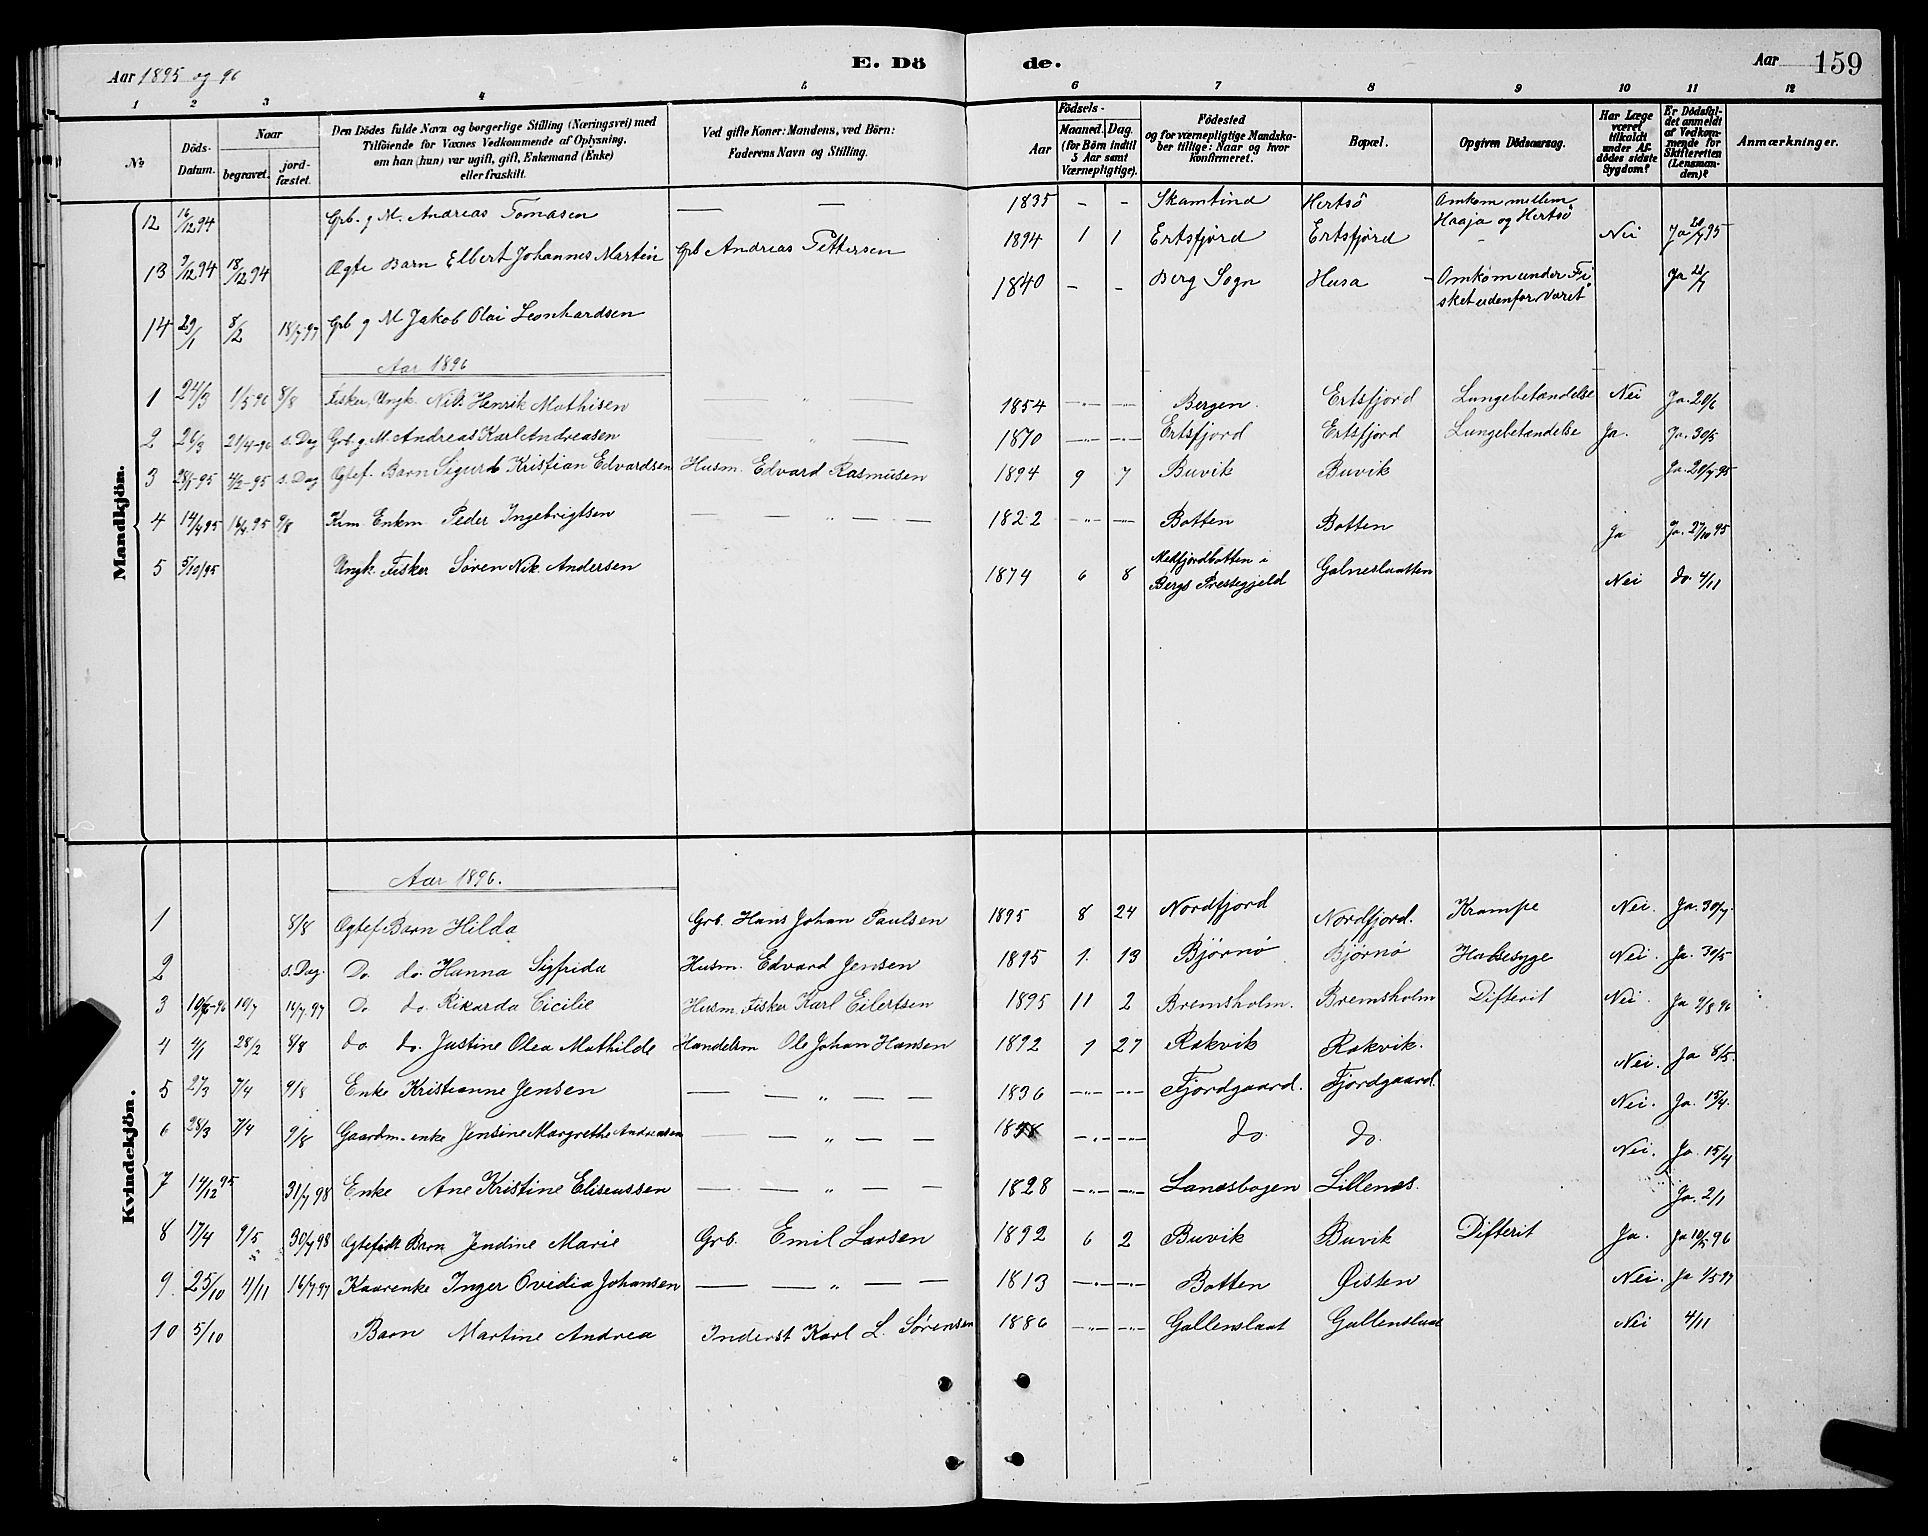 Aar 1895 og 96
E. Dö
de.
Aar
159
1 2 3 4 5 6 7 8 9 10 11 12
No
Döds-Datum.
Naar
begravet.
jord-fæstet.
Den Dödes fulde Navn og borgerlige Stilling (Næringsvei) med
Tilföiende for Voxnes Vedkommende af Oplysning,
om han (hun) var ugift, gift, Enkemand (Enke)
eller fraskilt.
Ved gifte Koner: Mandens, ved Börn:
Faderens Navn og Stilling.
Födsels-
Aar
Maaned. Dag.
(for Börn indtil
5 Aar samt
Værnepligtige).
Födested
og for værnepligtige Mandska-
ber tillige: Naar og hvor
konfirmeret.
Bopæl.
Opgiven Dödsaarsag.
Har Læge
været
tilkaldt
under Af-
dödes sidste
Sygdom?
Er Dödsfal-
det anmeldt
af Vedkom-
mende for
Skifteretten
(Lensman-
den)?
Anmærkninger.
Mandkjön.
12 16/12 94 Grb. g M. Andreas Tomasen — — 1835 - - Skamtind Hertsö Omkom mellem
Haaja og Hertsö
13 9/12 94 18/12 94 Ægte Barn Elbert Johannes Martin Grb Andreas Pettersen 1894 1 1 Ertsfjord Ertsfjord - Nei Ja 20/7 95
14 29/1 8/2 18/7 97 Grb g M Jakob Olai Leonhardsen 1840 - - Berg Sogn Husa Omkom under Fi
sket udenfor Været Ja 21/7
Aar 1896
1 24/3 1/5 96 8/8 Fisker, Ungk. Nils Henrik Mathisen — " — 1854 —"— —"— Bergen. Ertsfjord Lungebetændelse Nei Ja. 20/6
2 26/3 21/4-96 s. Dag Grb. g M. Andreas Karl Andreasen — " — 1870 —"— —"— Ertsfjord Ertsfjord Lungebetændelse Ja. Ja. 30/5
3 28/1-95 4/2-95 s. Dag Ægtef. Barn Sigurd Kristian Edvardsen Husm. Edvard Rasmusen 1894 9 7 Buvik Buvik Ja. 20/7 95
4 14/4 95 16/4 95 9/8 Krm. Enkm Peder Ingebrigtsen — — " — — 1822 —"— —"— Botten Botten Ja Ja. 27/10 95
5 5/10/95 Ungk. Fisker Søren Nik. Andersen 1874 6 8 Medfjordbotten i
Bergs Prestegjeld Galneslaatten Nei do. 4/11
Kvindekjön.
Aar 1896.
1 8/8 Ægtef. Barn Hilda Grb. Hans Johan Paulsen 1895 8 24 Nordfjord Nordfjord. Krampe Nei. Ja. 30/7.
2 s. Dag. Do. do. Hanna Sigfrida Husm. Edvard Jensen 1895 1. 13 Bjørnø Bjørnø Halsesyge Nei. Ja. 30/5
3 10/6-96 10/7 16/7 97 Do do. Rikarda Cicilie Husm. Fisker Karl Eilertsen 1895 11 2 Bremsholm. Bremsholm Difterit Nei. Ja 9/8 96
4 4/1 28/2 8/8 do do. Justine Olea Mathilde Handelsm Ole Johan Hansen 1892 1 27 Rakvik Rakvik. Nei. Ja 8/5.
5 27/3 7/4 9/8 Enke Kristianne Jensen — — " — — 1836 —"— —"— Fjordgaard. Fjordgaard. Nei. Ja. 15/4.
6 28/3 7/4 9/8 Gaardm. enke Jensine Margrethe Andreasen — " — — —"— —"— do. do. Nei. Ja. 15/4
7 14/12 95 31/7 98 Enke Ane Kristine Eliseussen — — " — — 1828 —"— —"— Landsbogen Lillenes. Ja. 2/1
8 17/4 9/5 30/7 98 Ægtefødt Barn Jendine Marie Grb. Emil Larsen 1892 6 2 Buvik Buvik Difterit Ja. Ja 10/5 96
9. 25/10 4/11 16/7 97 Kaarenke Inger Ovidia Johansen — — " — — 1813 —"— —"— Botten Øisten Nei. Ja 1/5 97
10 5/10 Barn Martine Andrea Inderst Karl L. Sørensen 1886 —"— —"— Gallenslaat Gallenslaat Nei 4/11